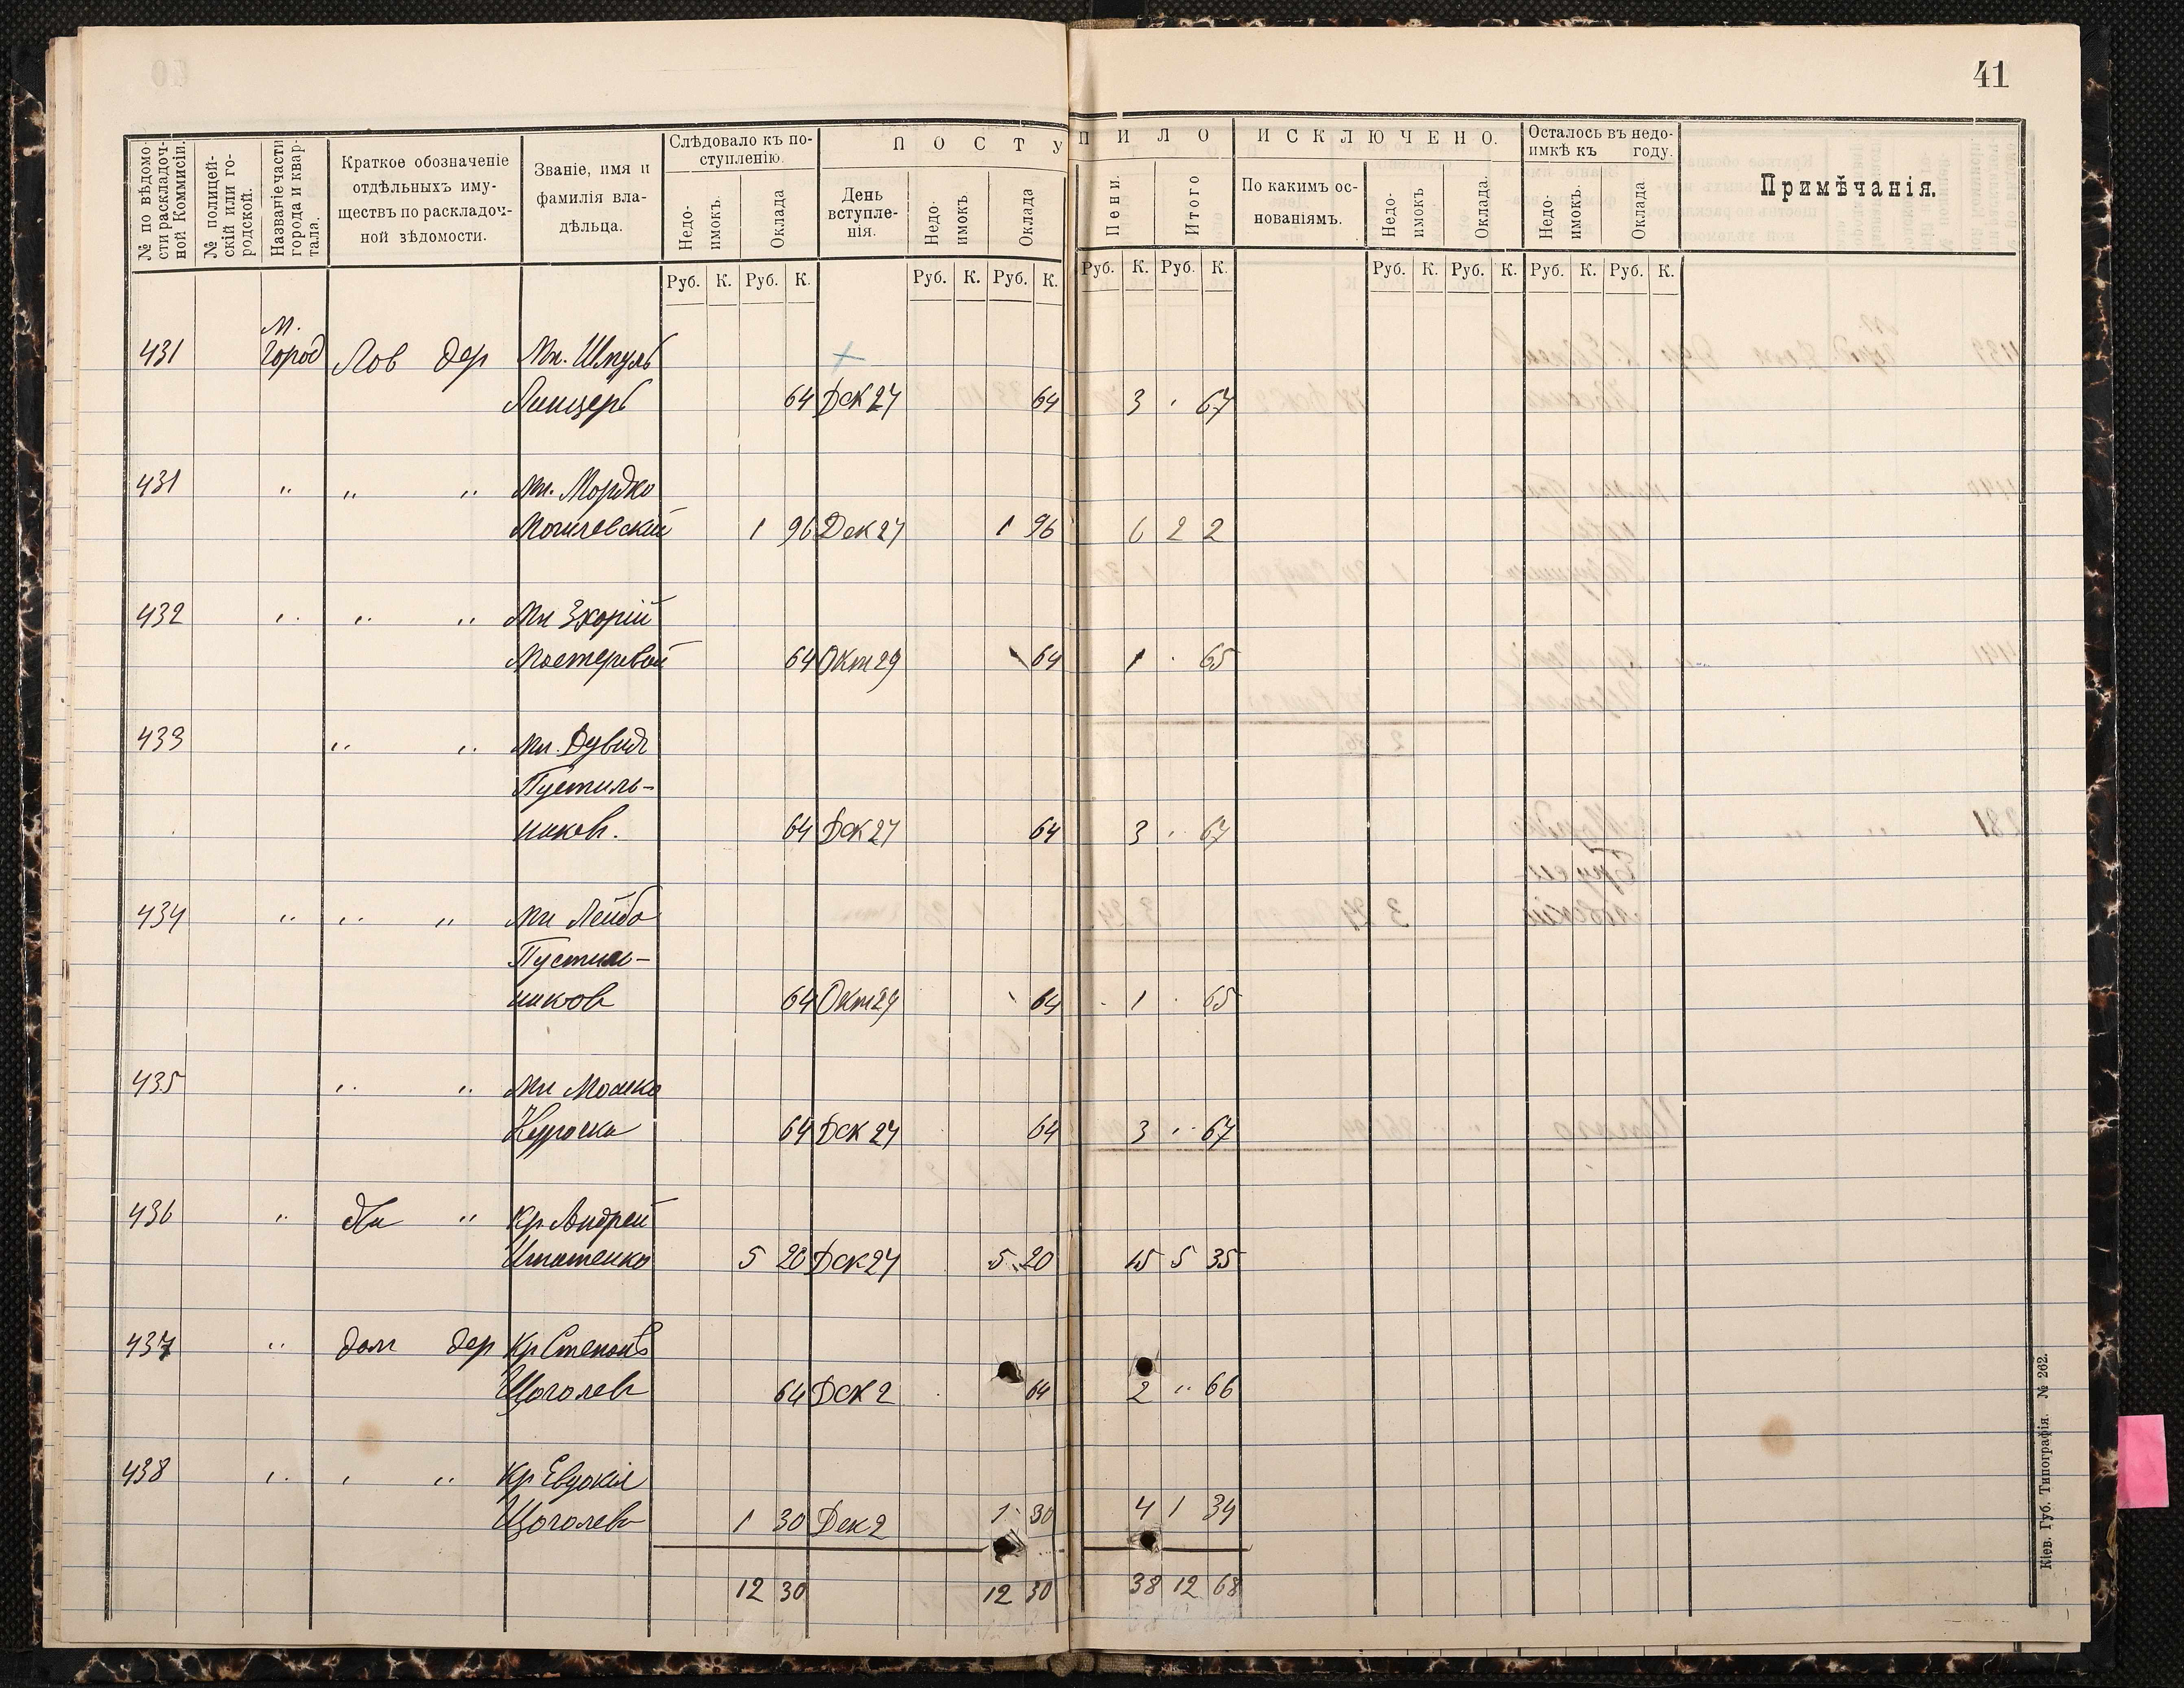 41
№ по вѣдомости раскладочной Коммисіи.
№ полицейскій или городской.
Названіе части города и квартала.
Краткое обозначеніе отдѣльныхъ имуществъ по раскладочной вѣдомости.
Званіе, имя и фамилія владѣльца.
Слѣдовало къ поступленію.
Недоимокъ. Оклада
ПОСТУПИЛО
День вступленія. Недоимокъ Оклада Пени. Итого
ИСКЛЮЧЕНО.
По какимъ основаніямъ. Недоимокъ Оклада.
Осталось въ недоимкѣ къ году.
Недоимокъ. Оклада
Примѣчанія.
Руб. К. Руб. К. Руб. К. Руб. К. Руб. К. Руб. К. Руб. К. Руб. К. Руб. К. Руб. К.
М.
431 Город Лав дер Мщ. Шмуль
64 Дек 27 64 3 67
431 " " " Мщ. Мордко
Могилевский 1 96 Дек 27 1 96 6 2 2
432 " " " Мщ
64 Окт 29 64 1 65
433 " " Мщ. Дувид
Пустиль-
ников. 64 Дек 27 64 3 " 67
434 " " " Мщ Лейба
Пустиль-
ников 64 Окт 29 64 1 65
435 " " Мщ Мошко
64 Дек 27 64 3 " 67
436 " " Кр Андрей
Игнатенко 5 20 Дек 27 5 20 15 5 35
437 " дом дер Кр Степанъ
Щоголев 64 Дек 2 64 2 " 66
438 " " " Кр Евдокія
Щоголева 1 30 Дек 2 1 30 4 1 34
12 30 12 30 38 12 68
Кіев. Губ. Типографія. № 262.